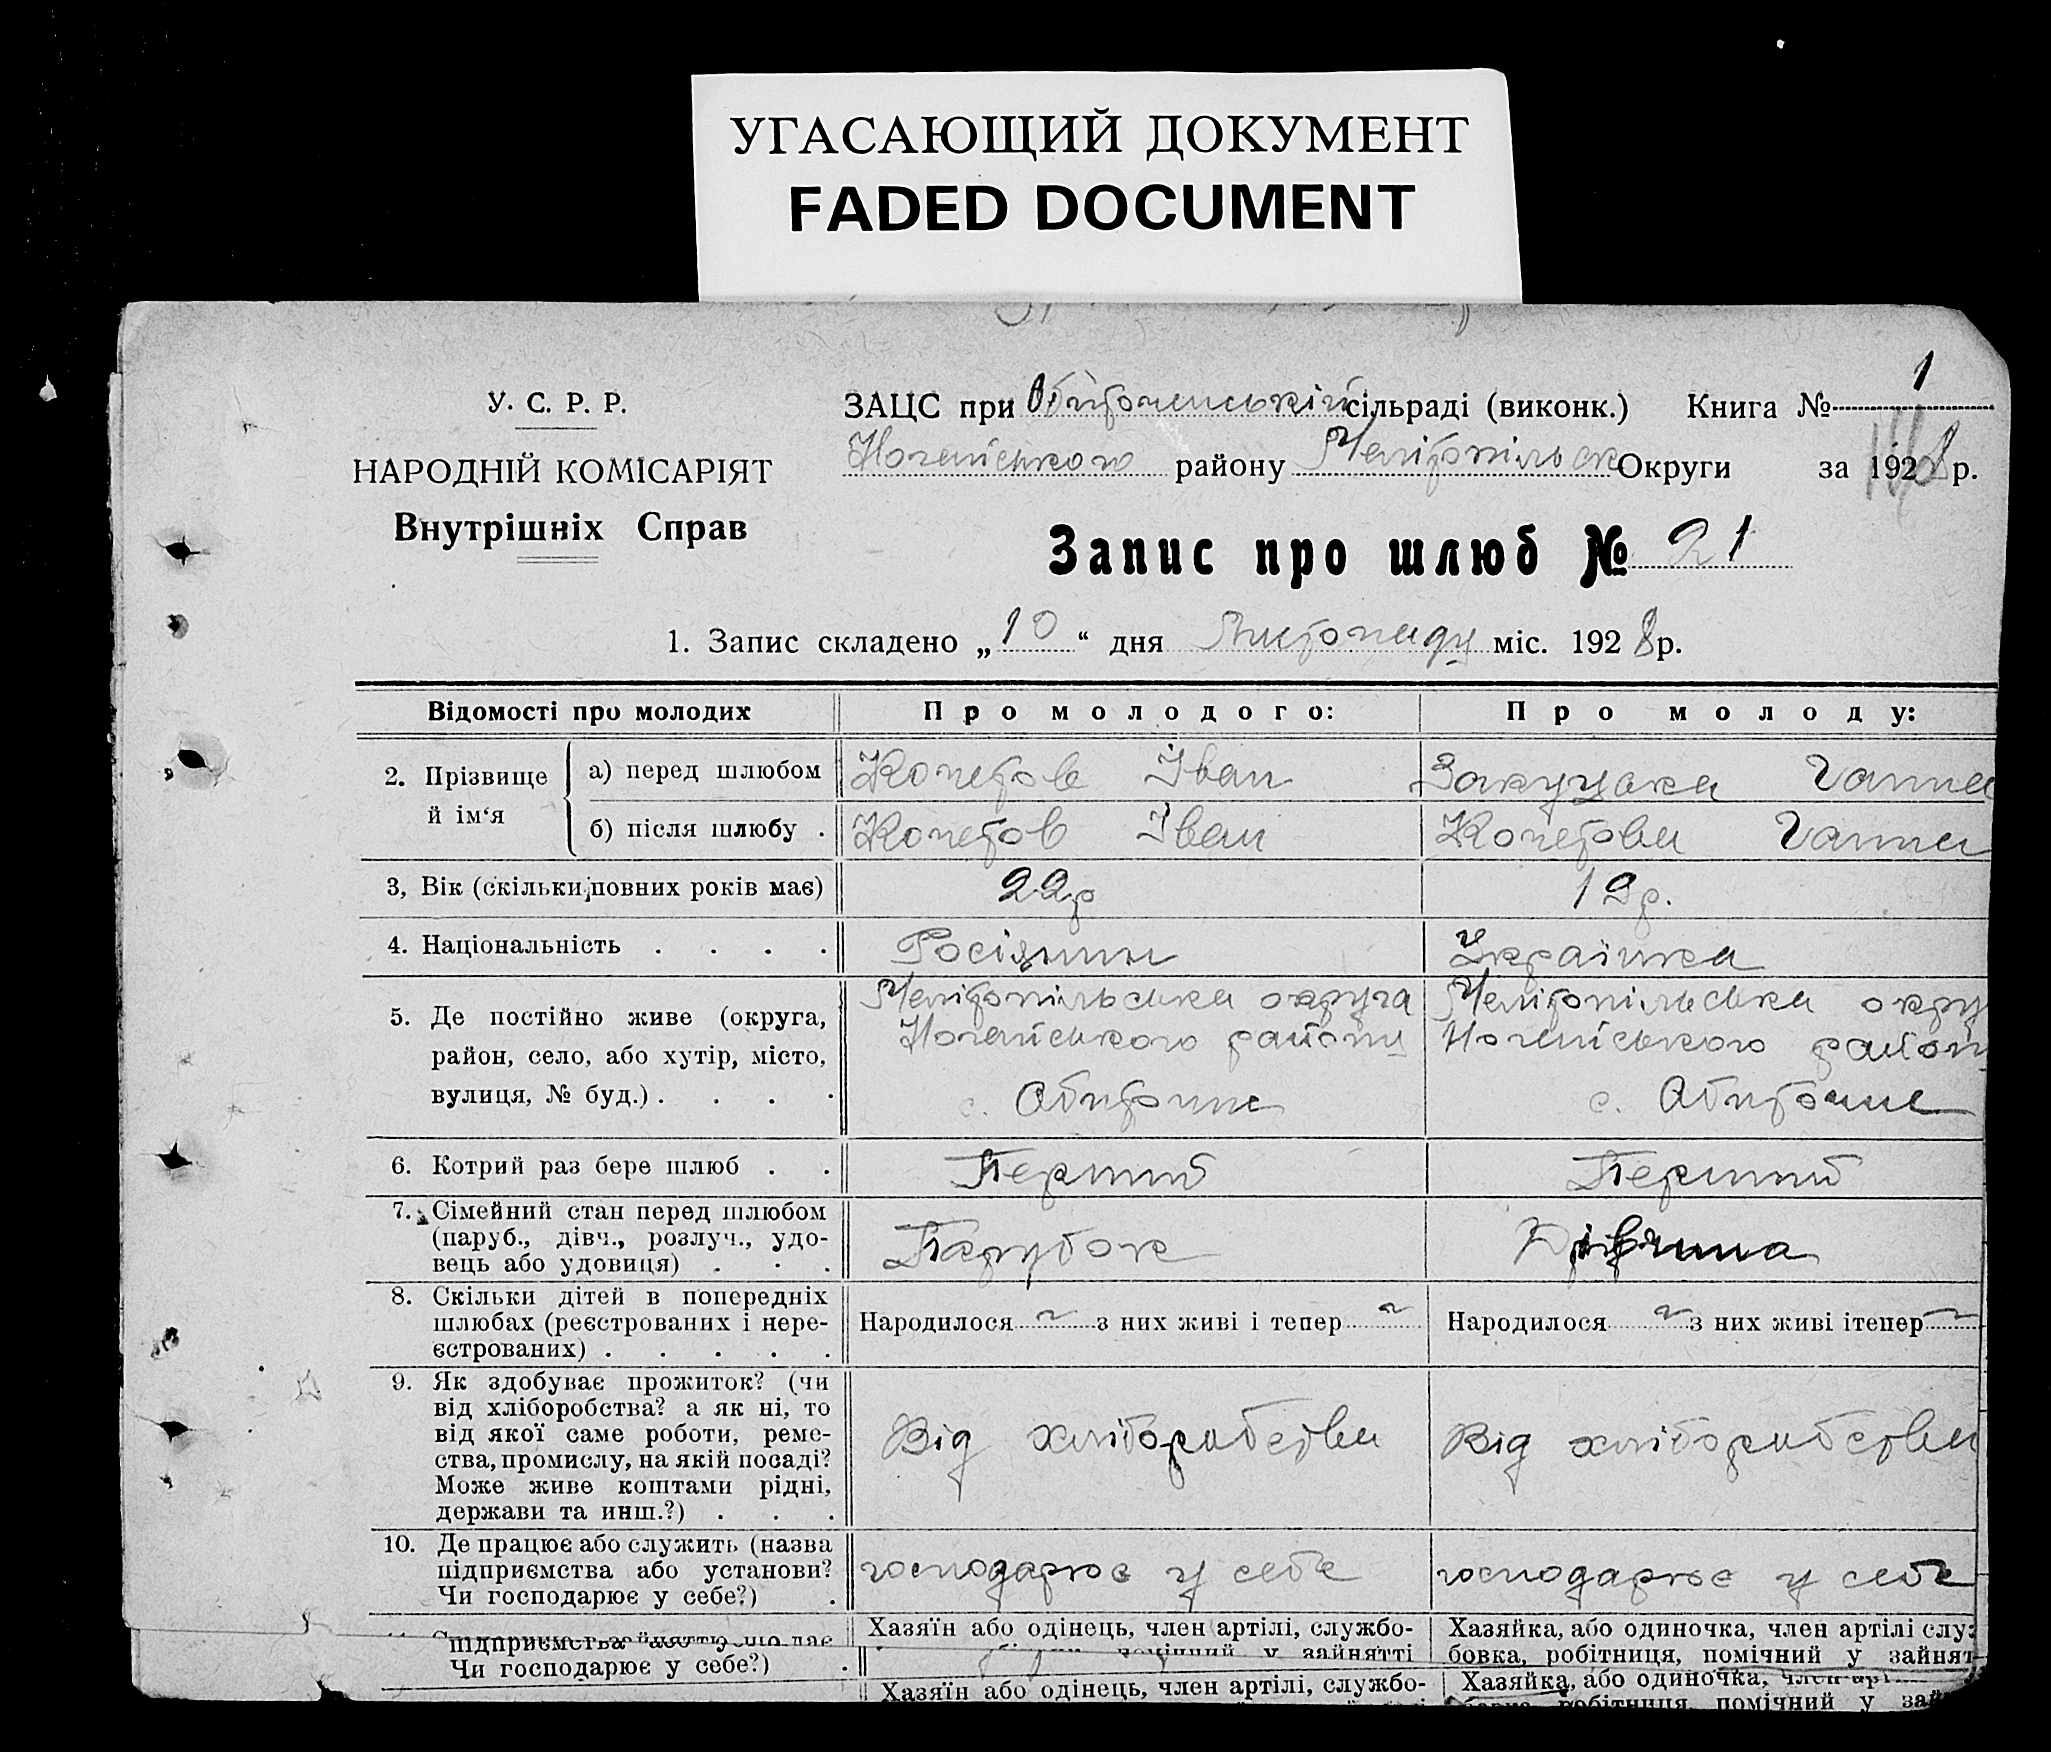 УГАСАЮЩИЙ ДОКУМЕНТ
FADED DOCUMENT
У. С. Р. Р.
НАРОДНІЙ КОМІСАРІЯТ
Внутрішніх Справ
ЗАЦС при Обиточенській сільраді (виконк.) Книга № 1
Ногайського району Мелітопільськ Округи за 1928 р.
Запис про шлюб № 21
1. Запис складено „10“ дня Листопаду міс. 1928 р.
Відомості про молодих Про молодого: Про молоду:
2. Прізвище й ім‘я
а) перед шлюбом Кочетов Іван Ганна
б) після шлюбу . Кочетов Іван Кочетова Ганна
3, Вік (скільки повних років має) 22р
4. Національність . . . . Росіянин Українка
5. Де постійно живе (округа, Мелітопільська округа Мелітопільська окру
район, село, або хутір, місто, Ногайського району Ногайського район
вулиця, № буд.) . . . . с. Обиточне с. Обиточне
6. Котрий раз бере шлюб . . Перший Перший
7. Сімейний стан перед шлюбом
(паруб., дівч., розлуч., удо-
вець або удовиця) . . . Парубок Дівчина
8. Скільки дітей в попередніх
шлюбах (реєстрованих і нере- Народилося ~ з них живі і тепер ~ Народилося ~ з них живі ітепер ~
єстрованих) . . . . .
9. Як здобуває прожиток? (чи
від хліборобства? а як ні, то
від якої саме роботи, реме- Від хліборобства Від хліборобства
ства, промислу, на якій посаді?
Може живе коштами рідні,
держави та инш.?) . . .
10. Де працює або служить (назва
підприємства або установи? господарює у себе господарює у себе
Чи господарює у себе?) .
Хазяїн або одінець, член артілі, службо- Хазяйка, або одиночка, член артілі служ
підприємства або
у зайнятті бовка, робітниця, помічний у зайнят
Чи господарює у себе?) .
Хазяїн або одінець, член артілі, службо- Хазяйка, або одиночка,
робітниця, помічний у